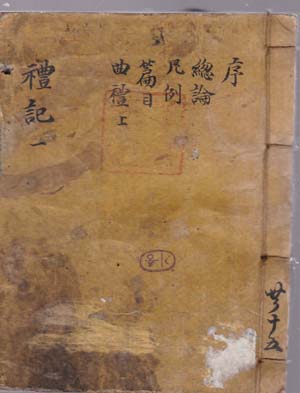 序
總論
凡例
篇目
曲禮 上
禮記 一
共十五